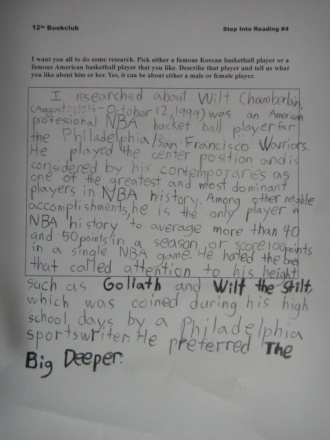 12th Bookclub Step Into Reading #4
I want you all to do some research. Pick either a famous Korean basketball player or a
famous American basketball player that you like. Describe that player and tell us what
you like about him or her. Yes, it can be about either a male or female player.
I researched about Wilt Chamberlain,
(August 21, 1936 - October 12, 1999) was an American
professional NBA backet ball player for
the Philadelphia/San Francisco Warriors.
He played the center position and is
considered by his contemporaries as
one of the greatest and most dominant
players in NBA history. Among other notable
accomplishments, he is the only player in
NBA history to average more than 40
and 50 points in a season or score 100 points
in a single NBA game. He hated the
that called attention to his height
such as Goliath and Wilt the Stilt,
which was coined during his high
school days by a Philadelphia
sportswriter. He preferred The
Big Deeper.